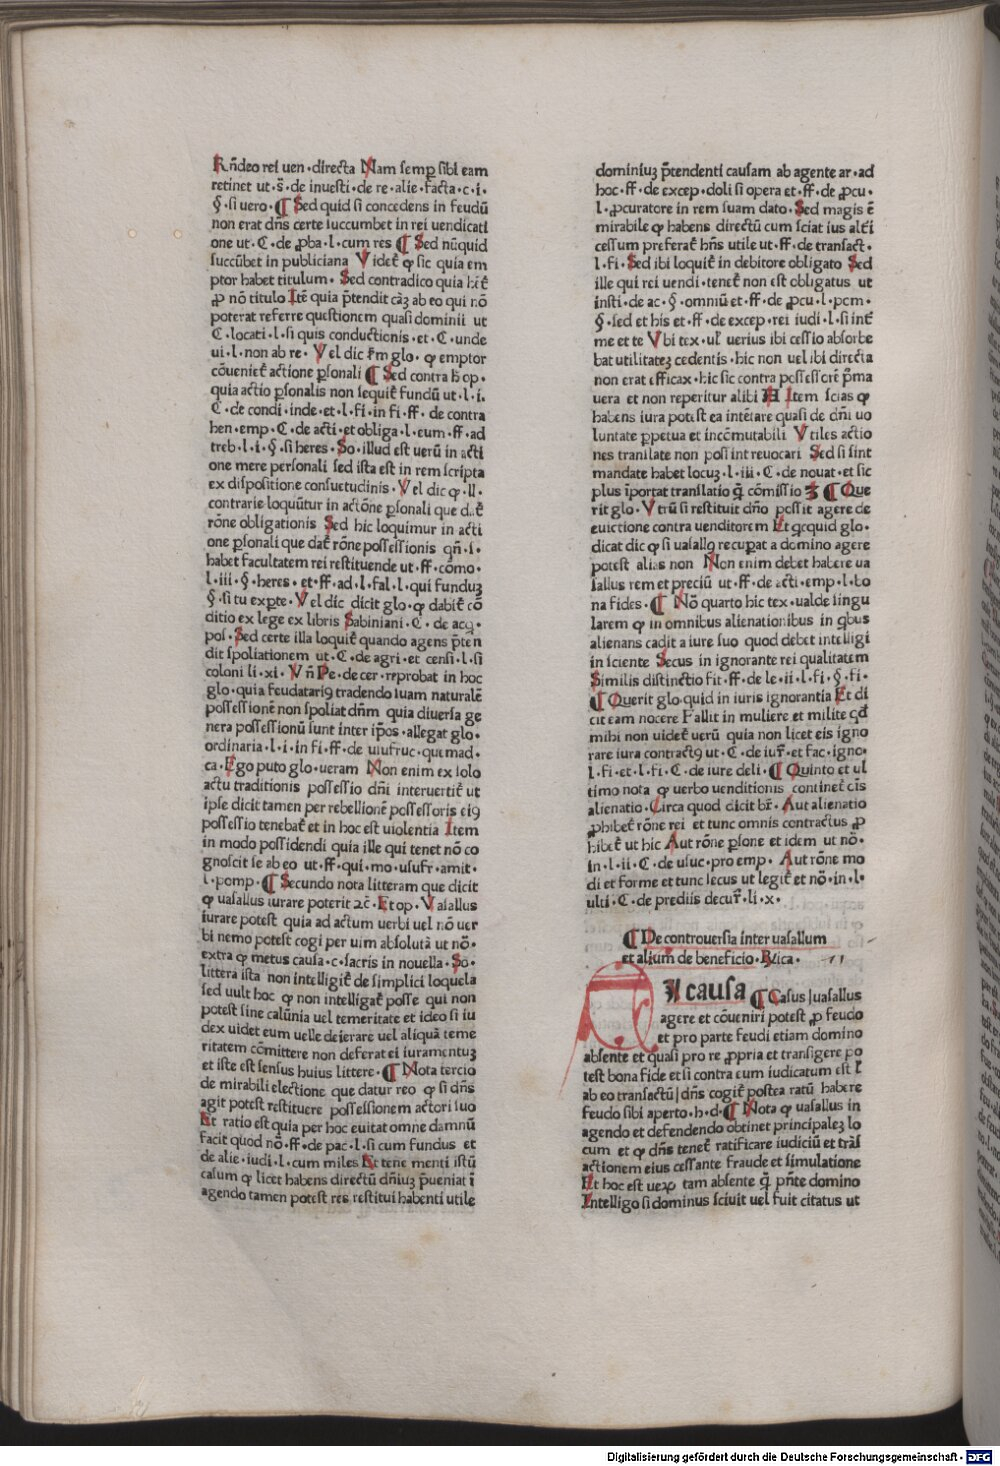 Rñdeo rei uen·directa Nam semꝑ sibi eam
retinet ut·s̄·de inuesti·de re·alie·facta·c·i·
§·si uero·¶ Sed quid si concedens in feudū
non erat dñs certe succumbet in rei uendicati
one ut·C·de ꝓba·l·cum res ¶ Sed nūquid
succūbet in publiciana Videt̄ ꝙ sic quia em
ptor habet titulum·Sed contradico quia hēt̄
ꝓ nō titulo Itē quia p̄tendit cāʒ ab eo qui nō
poterat referre questionem quasi dominii ut
C·locati·l·si quis conductionis·et·C·unde
ui·l·non ab re·Vel dic ẜm glo·ꝙ emptor
cōueniet̄ actione ꝑsonali ¶ Sed contra ħ op·
quia actio ꝑsonalis non sequit̄ fundū ut·l·i·
C·de condi·inde·et·l·fi·in fi·ff·de contra
hen·emp·C·de acti·et obliga·l·eum·ff·ad
treb·l·i·§·si heres·So·illud est uerū in acti
one mere personali sed ista est in rem scripta
ex dispositione consuetudinis·Vel dic ꝙ·ll·
contrarie loquūtur in actōne ꝑsonali que d..t̄
rōne obligationis Sed hic loquimur in acti
one ꝑsonali que dat̄ rōne possessionis qñ·s·
habet facultatem rei restituende ut·ff·cōmo·
l·iii·§·heres·et·ff·ad·l·fal·l·qui funduʒ
§·si tu ex ꝑte·Vel dic dicit glo·ꝙ dabit̄ cō
ditio ex lege ex libris Sabiniani·C·de acq·
pos·Sed certe illa loquit̄ quando agens p̄ten
dit spoliationem ut·C·de agri·et censi·l·si
coloni li·xi·Vñ Pe·de cer·reprobat in hoc
glo·quia feudatariꝰ tradendo suam naturalē
possessionē non spoliat dñm quia diuersa ge
nera possessionū sunt inter ip̄os·allegat glo·
ordinaria·l·i·in fi·ff·de usufruc·quemad·
ca·Ego puto glo·ueram Non enim ex solo
actu traditionis possessio dñi interuertit̄ ut
ipse dicit tamen per rebellionē possessoris eiꝰ
possessio tenebat̄ et in hoc est uiolentia Item
in modo possidendi quia ille qui tenet nō co
gnoscit se ab eo ut·ff·qui·mo·usufr·amit·
l·pomp·¶ Secundo nota litteram que dicit
ꝙ uasallus iurare poterit ⁊c̄·Et op·Vasallus
iurare potest quia ad actum uerbi uel nō uer
bi nemo potest cogi per uim absolutā ut nō·
extra ꝙ metus causa·c·sacris in nouella·So·
littera ista non intelligit̄ de simplici loquela
sed uult hoc ꝙ non intelligat̄ posse qui non
potest sine calūnia uel temeritate et ideo si iu
dex uidet eum uelle deierare uel aliquā teme
ritatem cōmittere non deferat ei iuramentuʒ
et iste est sensus huius littere·¶ Nota tercio
de mirabili electione que datur reo ꝙ si dñs
agit potest restituere possessionem actori suo
Et ratio est quia per hoc euitat omne damnū
facit quod nō·ff·de pac·l·si cum fundus et
de alie·iudi·l·cum miles Et tene menti istū
casum ꝙ licet habens directū dñiuʒ p̄ueniat ī
agendo tamen potest res restitui habenti utile
dominiuʒ p̄tendenti causam ab agente ar·ad
hoc·ff·de excep·doli si opera et·ff·de ꝓcu·
l·ꝓcuratore in rem suam dato·Sed magis ē
mirabile ꝙ habens directū cum sciat ius alt̄i
cessum preferat̄ hñs utile ut·ff·de transact·
l·fi·Sed ibi loquit̄ in debitore obligato Sed
ille qui rei uendi·tenet̄ non est obligatus ut
insti·de ac·§·omniū et·ff·de ꝓcu·l·pcm·
§·sed et his et·ff·de excep·rei iudi·l·si int̄
me et te Vbi tex·ul̄ uerius ibi cessio absorbe
bat utilitateʒ cedentis·hic non uel ibi directa
non erat efficax·hic sic contra possessorē p̄ma
uera et non reperitur alibi Item scias ꝙ
habens iura potest ea intētare quasi de dñi uo
luntate ꝑpetua et incōmutabili Vtiles actio
nes translate non possint reuocari Sed si sint
mandate habet locuʒ·l·iii·C·de nouat·et sic
plus īportat translatio q̄ cōmissio ¶ Que
rit glo·Vtrū si restituit dño possit agere de
euictione contra uenditorem Et qcquid glo·
dicat dic ꝙ si uasallꝰ recuꝑat a domino agere
potest alias non Non enim debet habere ua
sallus rem et preciū ut·ff·de acti·emp·l·bo
na fides·¶ Nō quarto hic tex·ualde singu
larem ꝙ in omnibus alienationibus in qbus
alienans cadit a iure suo quod debet intelligi
in sciente Secus in ignorante rei qualitatem
Similis distinctio fit·ff·de le·ii·l·fi·§·fi·
¶ Querit glo·quid in iuris ignorantia Et di
cit eam nocere Fallit in muliere et milite qđ
mihi non uidet̄ uerū quia non licet eis igno
rare iura contractꝰ ut·C·de iur̄·et fac·igno·
l·fi·et·l·fi·C·de iure deli·¶ Quinto et ul
timo nota ꝙ uerbo uenditionis continet̄ oīs
alienatio·Circa quod dicit br̄·Aut alienatio
ꝓhibet̄ rōne rei et tunc omnis contractus ꝓ
hibet̄ ut hic Aut rōne ꝑsone et idem ut nō·
in·l·ii·C·de usuc·pro emp·Aut rōne mo
di et forme et tunc secus ut legit̄ et nō·in·l·
ulti·C·de prediis decur̄·li·x·
¶ De controuersia inter uasallum
et alium de beneficio·Rubrica·
Si causa ¶ Casus uasallus
agere et cōueniri potest ꝓ feudo
et pro parte feudi etiam domino
absente et quasi pro re ꝓpria et transigere po
test bona fide et si contra eum iudicatum est ł
ab eo transactū dñs cogit̄ postea ratū habere
feudo sibi aperto·h·d·¶ Nota ꝙ uasallus in
agendo et defendendo obtinet principaleʒ lo
cum et ꝙ dñs tenet̄ ratificare iudiciū et trās
actionem eius cessante fraude et simulatione
Et hoc est ueꝝ tam absente q̄ pñte domino
Intelligo si dominus sciuit uel fuit citatus ut
Digitalisierung gefördert durch die Deutsche Forschungsgemeinschaft - DFG